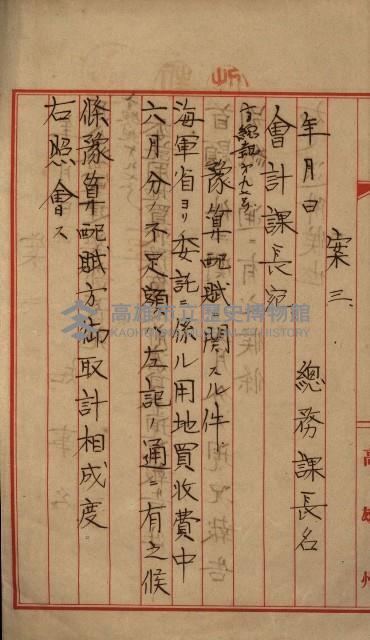 案三、
年月日
總務課長名
會計課長宛
豫算配賦ニ関スル件
海軍省ヨリ委託ニ係ル用地買收費中
六月分ノ不足額ハ左記ノ通ニ有之候
條豫算配賦方御取計相成度
右照會ス
高雄州
高雄市立歷史博物館
KAOHSIUNG MUSEUM OF HISTORY